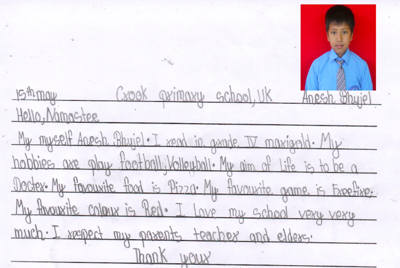 15th may Crook primary school, UK Anesh Bhujel
Hello, Namastee
My myself Anesh Bhujel. I read in grade IV marigold. My
hobbies are play football, Volleyball. My aim of life is to be a
Docter. My favourite food is Pizza. My favourite game is Freefire.
My favourite colour is Red. I love my school very very
much. I respect my parents teacher and elders.
Thank your